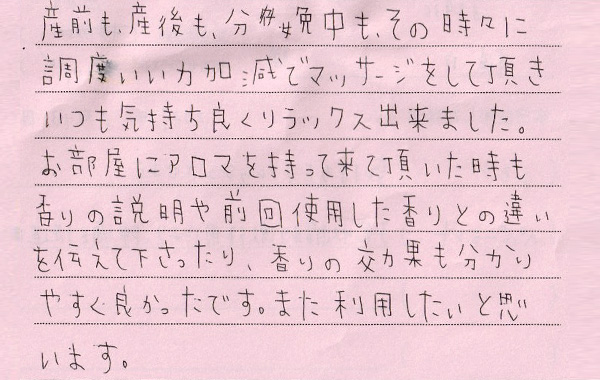 産前も、産後も、分娩中も、その時々に
調度いい力加減でマッサージをして頂き
いつも気持ち良くリラックス出来ました。
お部屋にアロマを持って来て頂いた時も
香りの説明や前回使用した香りとの違い
を伝えて下さったり、香りの効果も分かり
やすく良かったです。また利用したいと思
います。